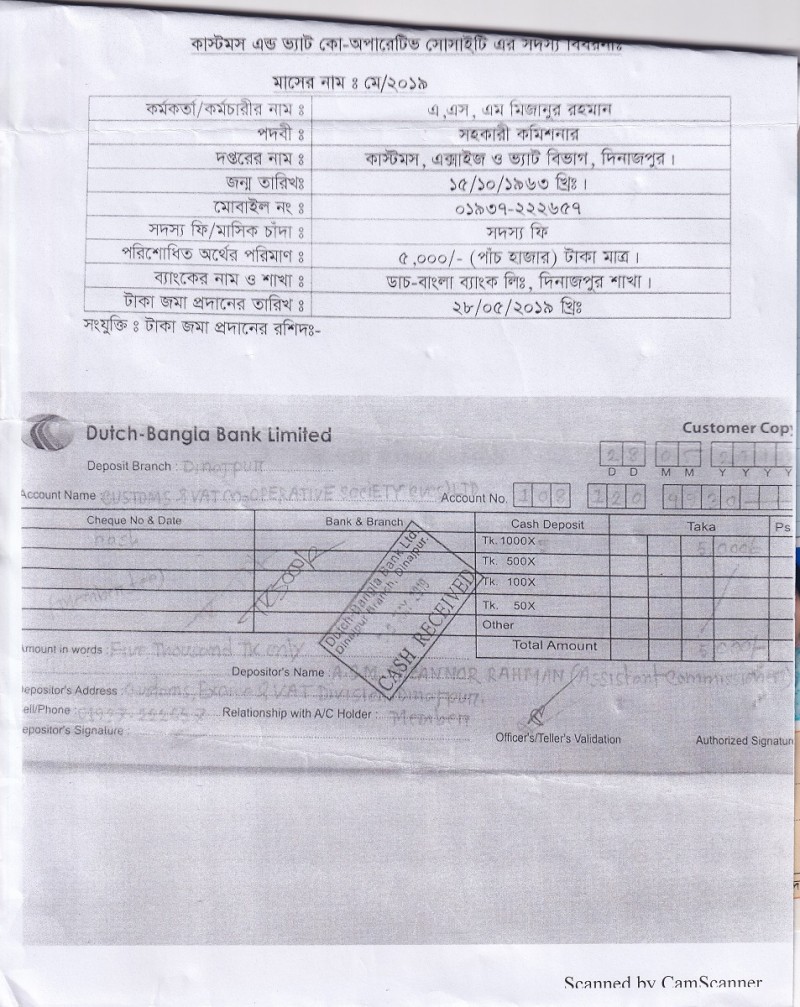 কাস্টমস এন্ড ভ্যাট কো-অপারেটিভ সোসাইটি এর সদস্য বিবরনীঃ
মাসের নাম ঃ মে/২০১৯
কর্মকর্তা/কর্মচারীর নাম ঃ এ,এস, এম মিজানুর রহমান
পদবী ঃ সহকারী কমিশনার
দপ্তরের নাম ঃ কাস্টমস, এক্সাইজ ও ভ্যাট বিভাগ, দিনাজপুর।
জন্ম তারিখঃ ১৫/১০/১৯৬৩ খ্রিঃ।
মোবাইল নং ঃ ০১৯৩৭-২২২৬৫৭
সদস্য ফি/মাসিক চাঁদা ঃ সদস্য ফি
পরিশোধিত অর্থের পরিমাণ ঃ ৫,০০০/- (পাঁচ হাজার) টাকা মাত্র।
ব্যাংকের নাম ও শাখা ঃ ডাচ-বাংলা ব্যাংক লিঃ, দিনাজপুর শাখা।
টাকা জমা প্রদানের তারিখ ঃ ২৮/০৫/২০১৯ খ্রিঃ
সংযুক্তি ঃ টাকা জমা প্রদানের রশিদঃ-
Dutch-Bangla Bank Limited Customer Copy
Deposit Branch : Dinajpur 28 05
D D M M Y Y Y Y
Account Name CUSTOMS & VAT CO-OPERATIVE SOCIETY LTD Account No. 108 120
Cheque No & Date Bank & Branch Cash Deposit Taka Ps
Cash Tk. 1000X 5 5000/-
Tk. 500X
Tk. 100X
Tk. 50X
Other
TK 5000/-
Dutch-Bangla Bank Ltd.
Dinajpur Branch, Dinajpur.
CASH RECEIVED
Total Amount 5000/-
Amount in words : Five Thousand TK only
Depositor's Name : A.S.M. RAHMAN (Assistant Commissioner)
Depositor's Address : Customs, Excise & VAT Division, Dinajpur.
Cell/Phone : 01937-222657 Relationship with A/C Holder : Member
Depositor's Signature : Officer's/Teller's Validation Authorized Signature
Scanned by CamScanner